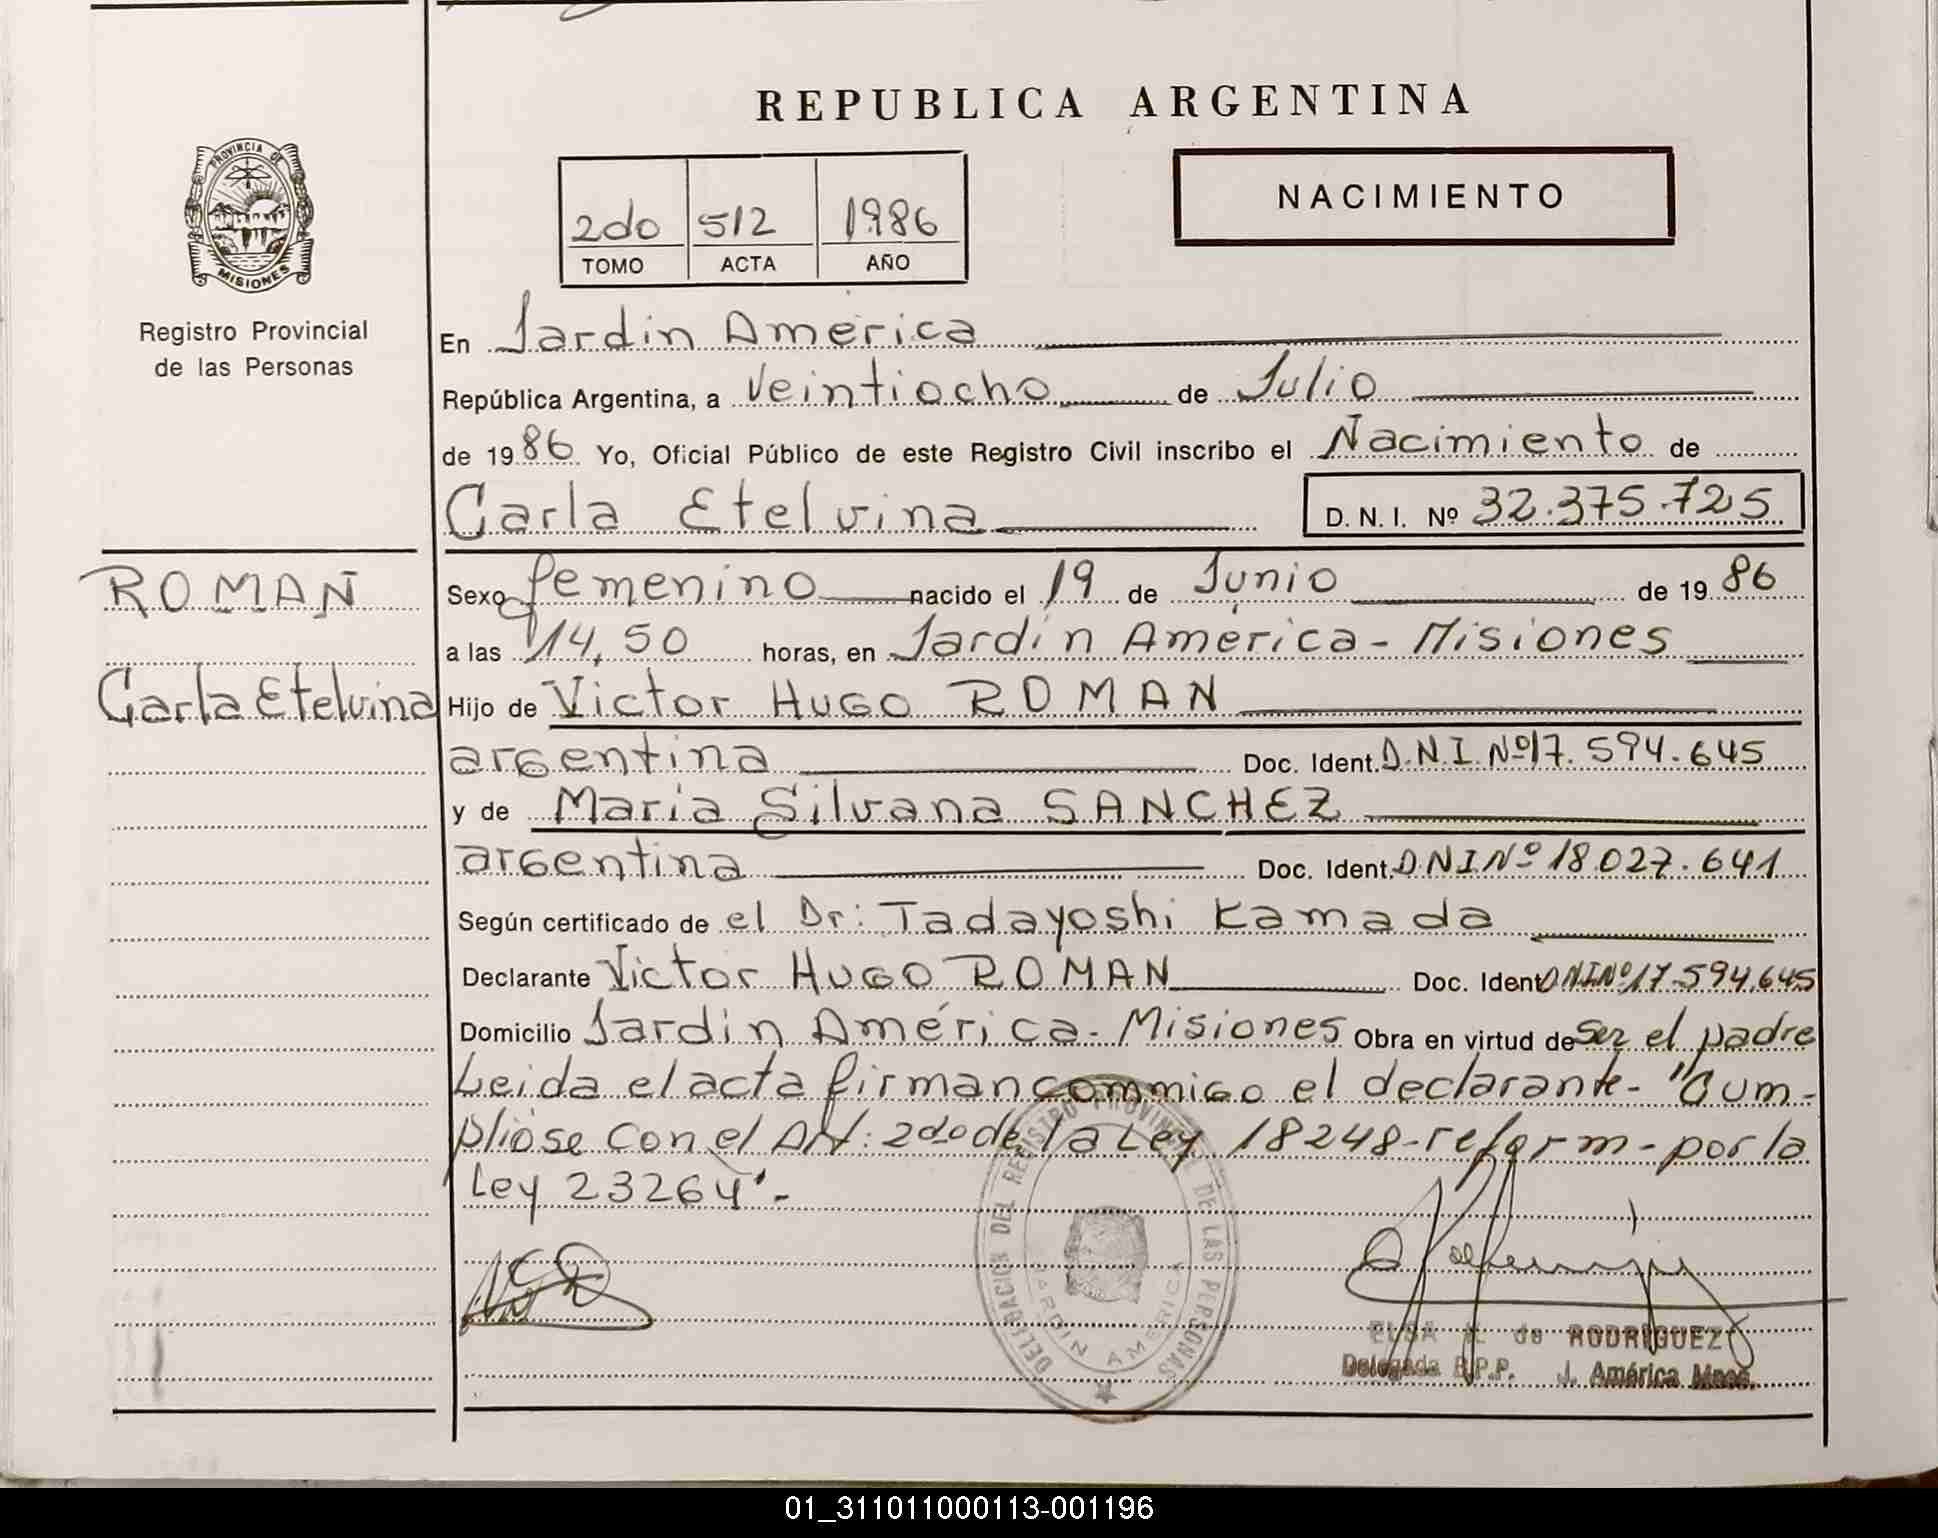 REPUBLICA ARGENTINA
PROVINCIA DE
MISIONES
Registro Provincial
de las Personas
2do 512 1986
TOMO ACTA AÑO
NACIMIENTO
En Jardin America
República Argentina, a Veintiocho de Julio
de 1986 Yo, Oficial Público de este Registro Civil inscribo el Nacimiento de
Carla Etelvina D. N. I. Nº 32.375.725
ROMAN
Carla Etelvina
Sexo femenino nacido el 19 de Junio de 1986
a las 14,50 horas, en Jardin América - Misiones
Hijo de Victor Hugo ROMAN
argentina Doc. Ident. D.N.I. Nº 17.594.645
y de Maria Silvana SANCHEZ
argentina Doc. Ident. DNI Nº 18.027.641
Según certificado de el Dr: Tadayoshi Kamada
Declarante Victor Hugo ROMAN Doc. Ident DNI Nº 17.594.645
Domicilio Jardin América - Misiones Obra en virtud de Ser el padre
Leida el acta firman commigo el declarante - "Cum-
pliose con el Art: 2do de la Ley 18248 - reform - por la
Ley 23264" -
DELEGACION DEL REGISTRO PROVINCIAL DE LAS PERSONAS
JARDIN AMERICA
ELSA de RODRIGUEZ
Delegada R.P.P. J. América Mnes.
01_311011000113-001196